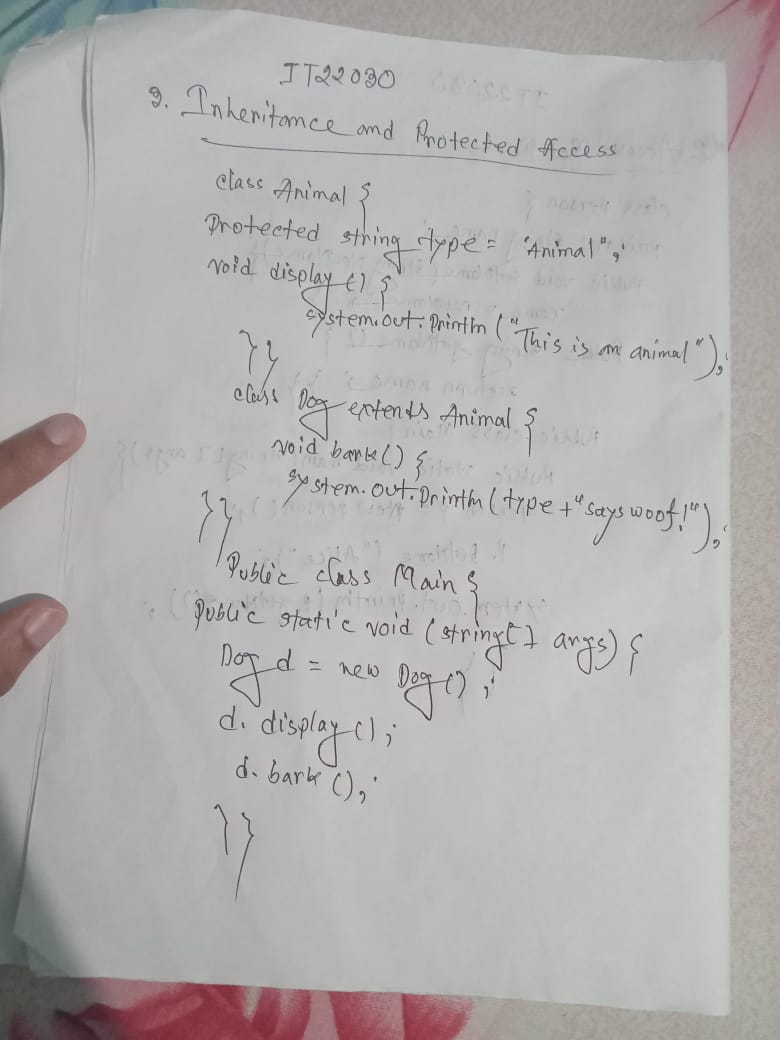 IT22030
3. Inheritance and Protected Access
class Animal {
Protected string type = "Animal";
void display () {
system.out.println ("This is an animal");
}}
class Dog extends Animal {
void bark() {
system.out.println (type + "says woof!");
}}
Public class Main {
Public static void (string[] args) {
Dog d = new Dog();
d. display ();
d. bark ();
}}